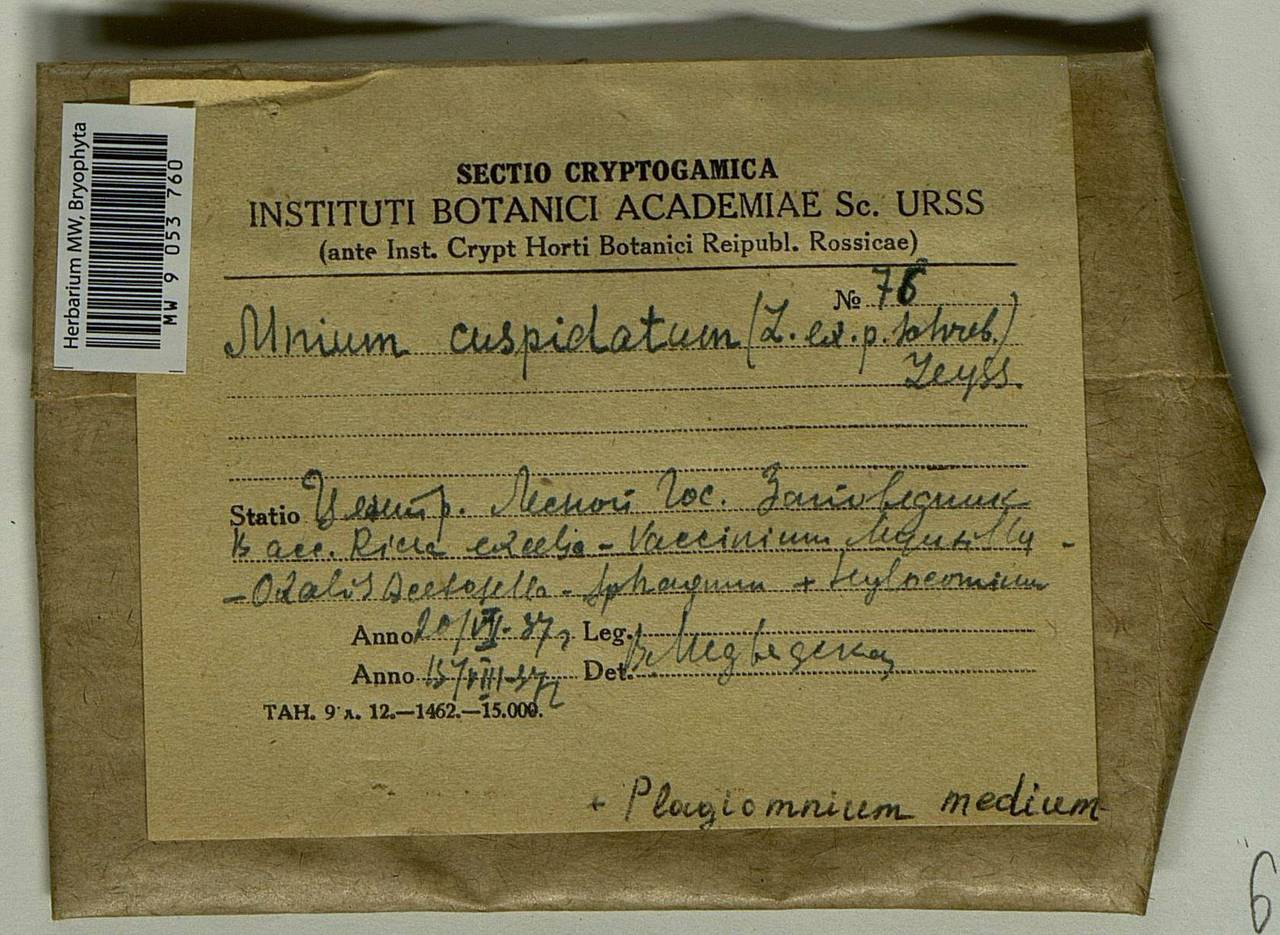 Herbarium MW, Bryophyta
MW 9 053 760
SECTIO CRYPTOGAMICA
INSTITUTI BOTANICI ACADEMIAE Sc. URSS
(ante Inst. Crypt Horti Botanici Reipubl. Rossicae)
№ 76
Mnium cuspidatum (L. ex. p. Schreb.)
Leyss.
Statio Центр. Лесной Гос. Заповедник
В асс. Picea excelsa - Vaccinium Myrtillus -
- Oxalis Acetosella - Sphagnum + Hylocomium
Anno 20/VI-37 Leg.
Anno 15/VIII-37 Det. В. Медведская
ТАН. 9 л. 12.—1462.—15.000.
+ Plagiomnium medium
6